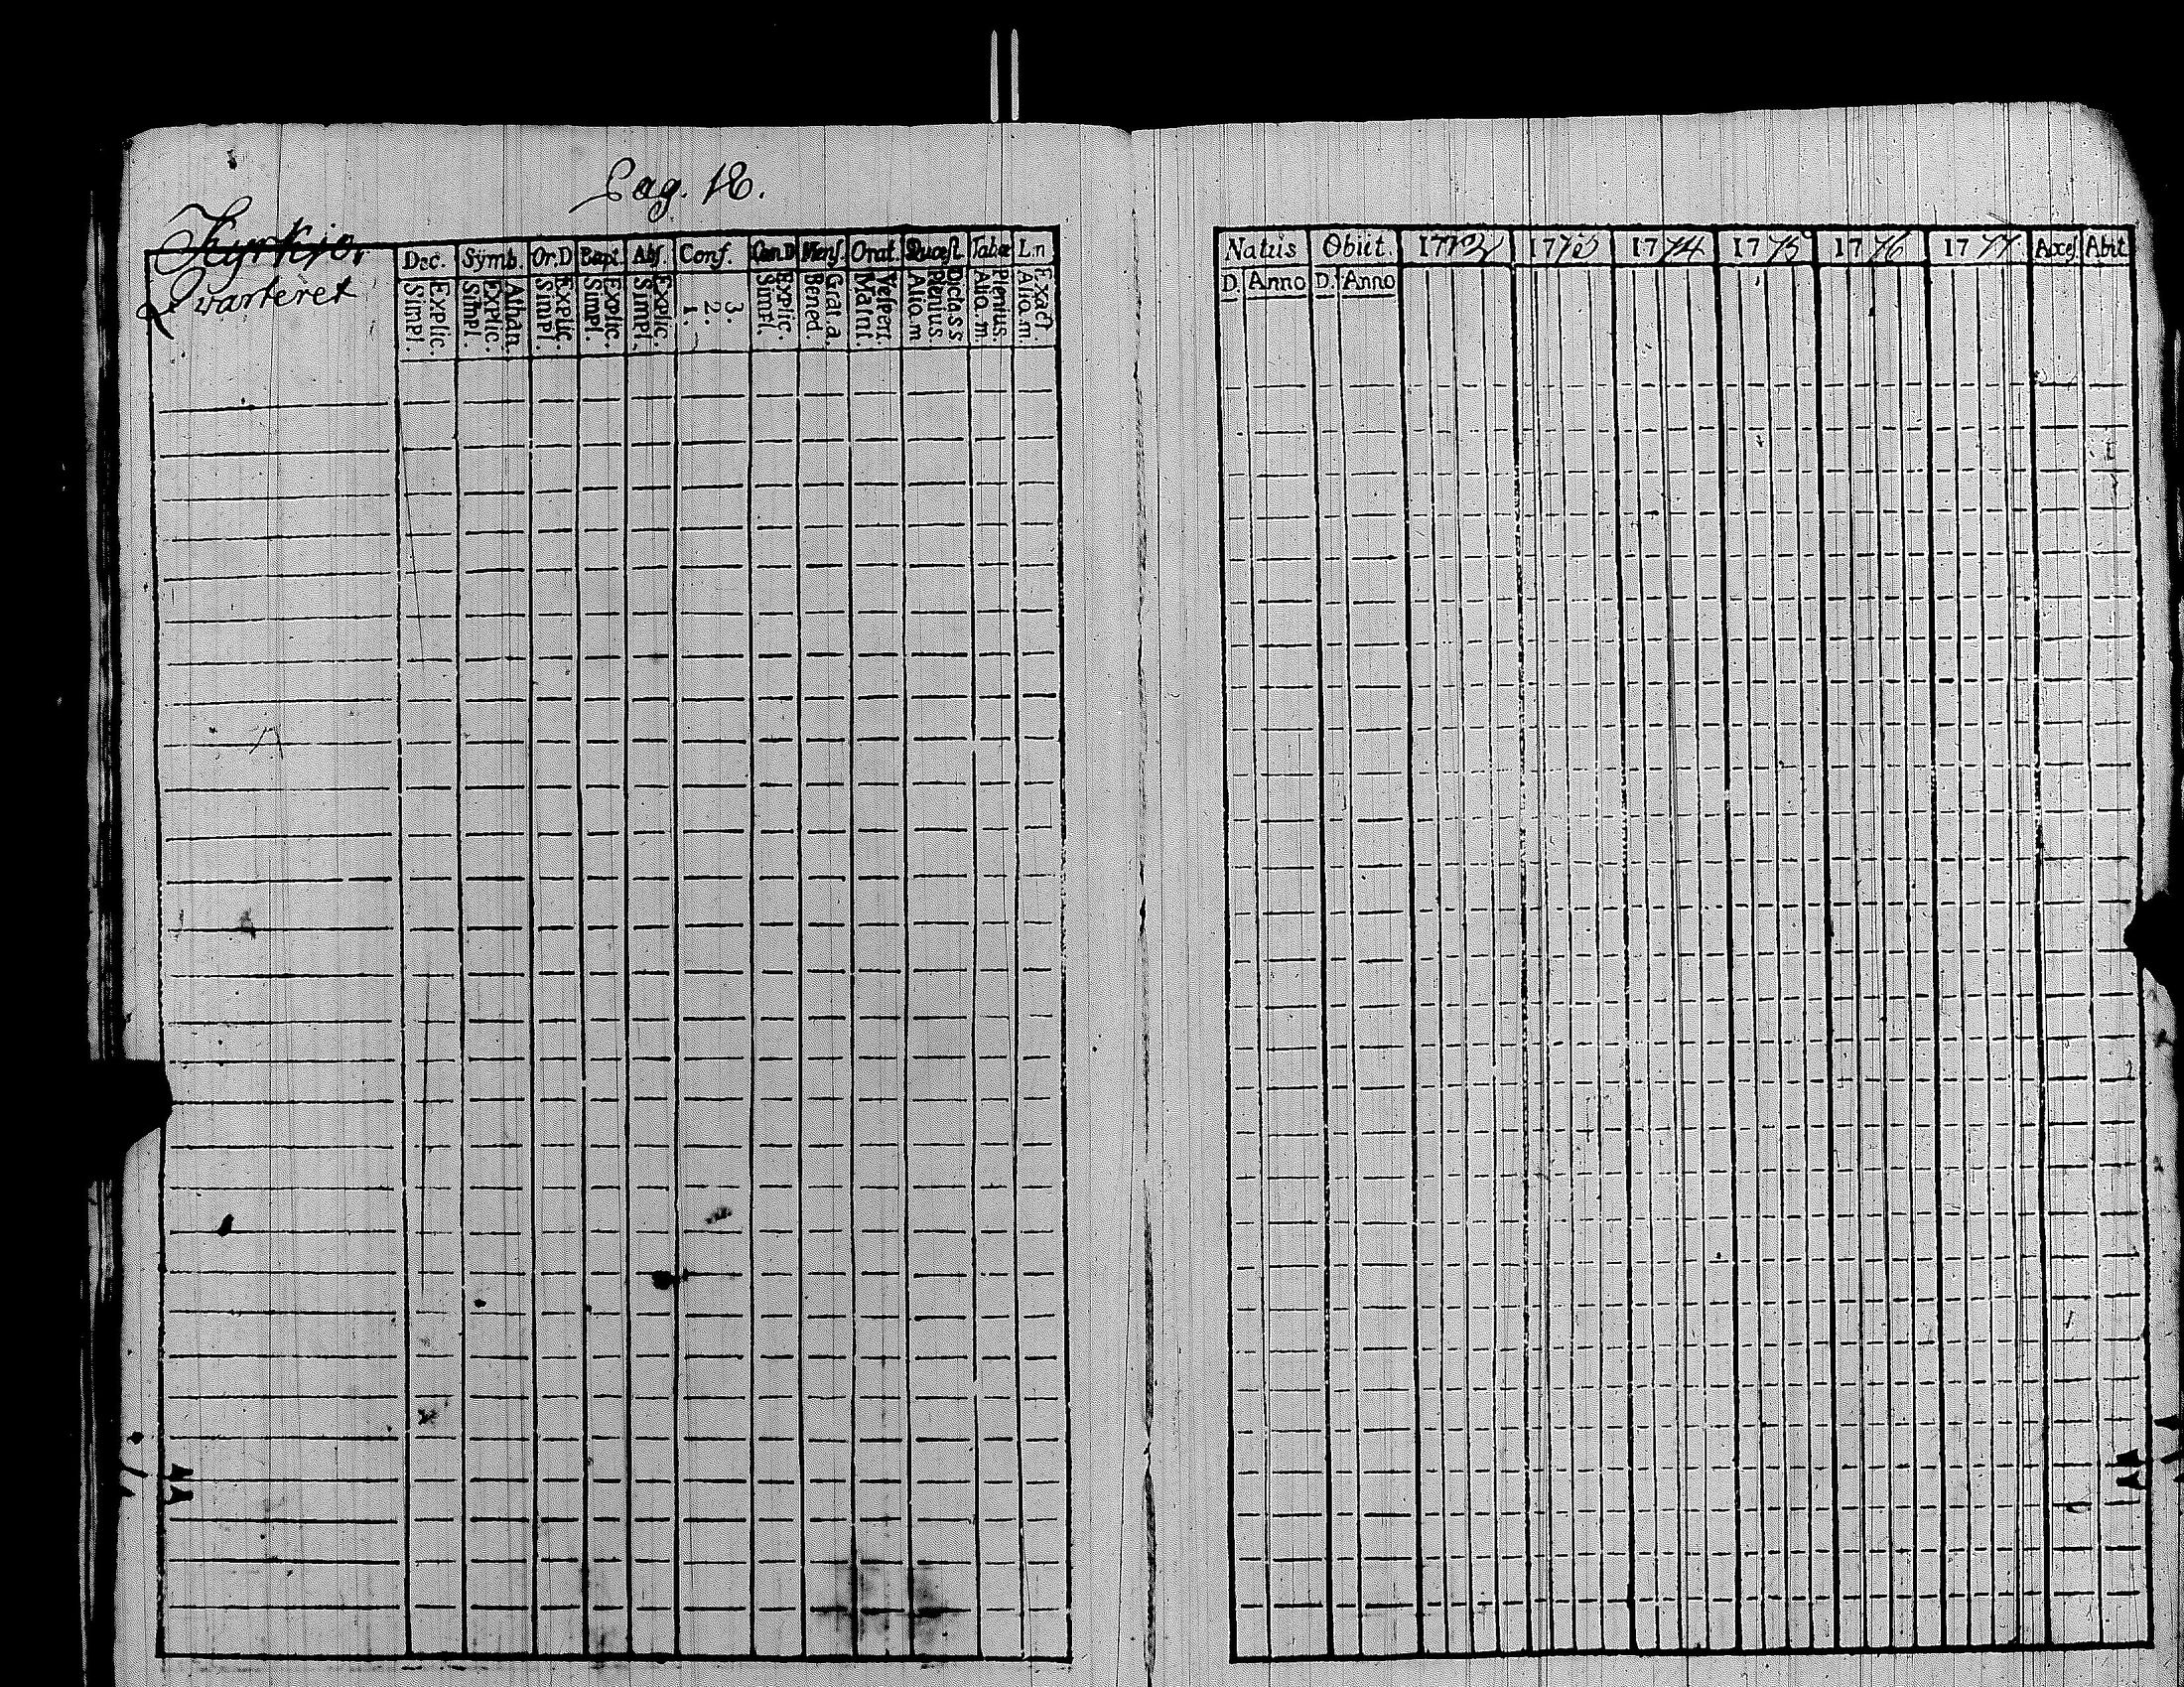 Pag. 18.
Kyrkior
Qvarteret
Dec. Symb. Or.D Bapt. Abs. Conf. Cœn.D Mens. Orat. Quæst. Tabœ L.n
Explic. Simpl. Athan. Explic. Simpl. Explic. Simpl. Explic. Simpl. Explic. Simpl. 3. 2. 1. Explic. Simpl. Grat.a. Bened. Vesperi. Matni. Dicta.s.s Plenius. Alio.m Plenius. Alio.m. Exact. Alia.m.
Natuis Obiit. 1772 1773 1774 1775 1776 1777 Acces Abit
D. Anno D. Anno